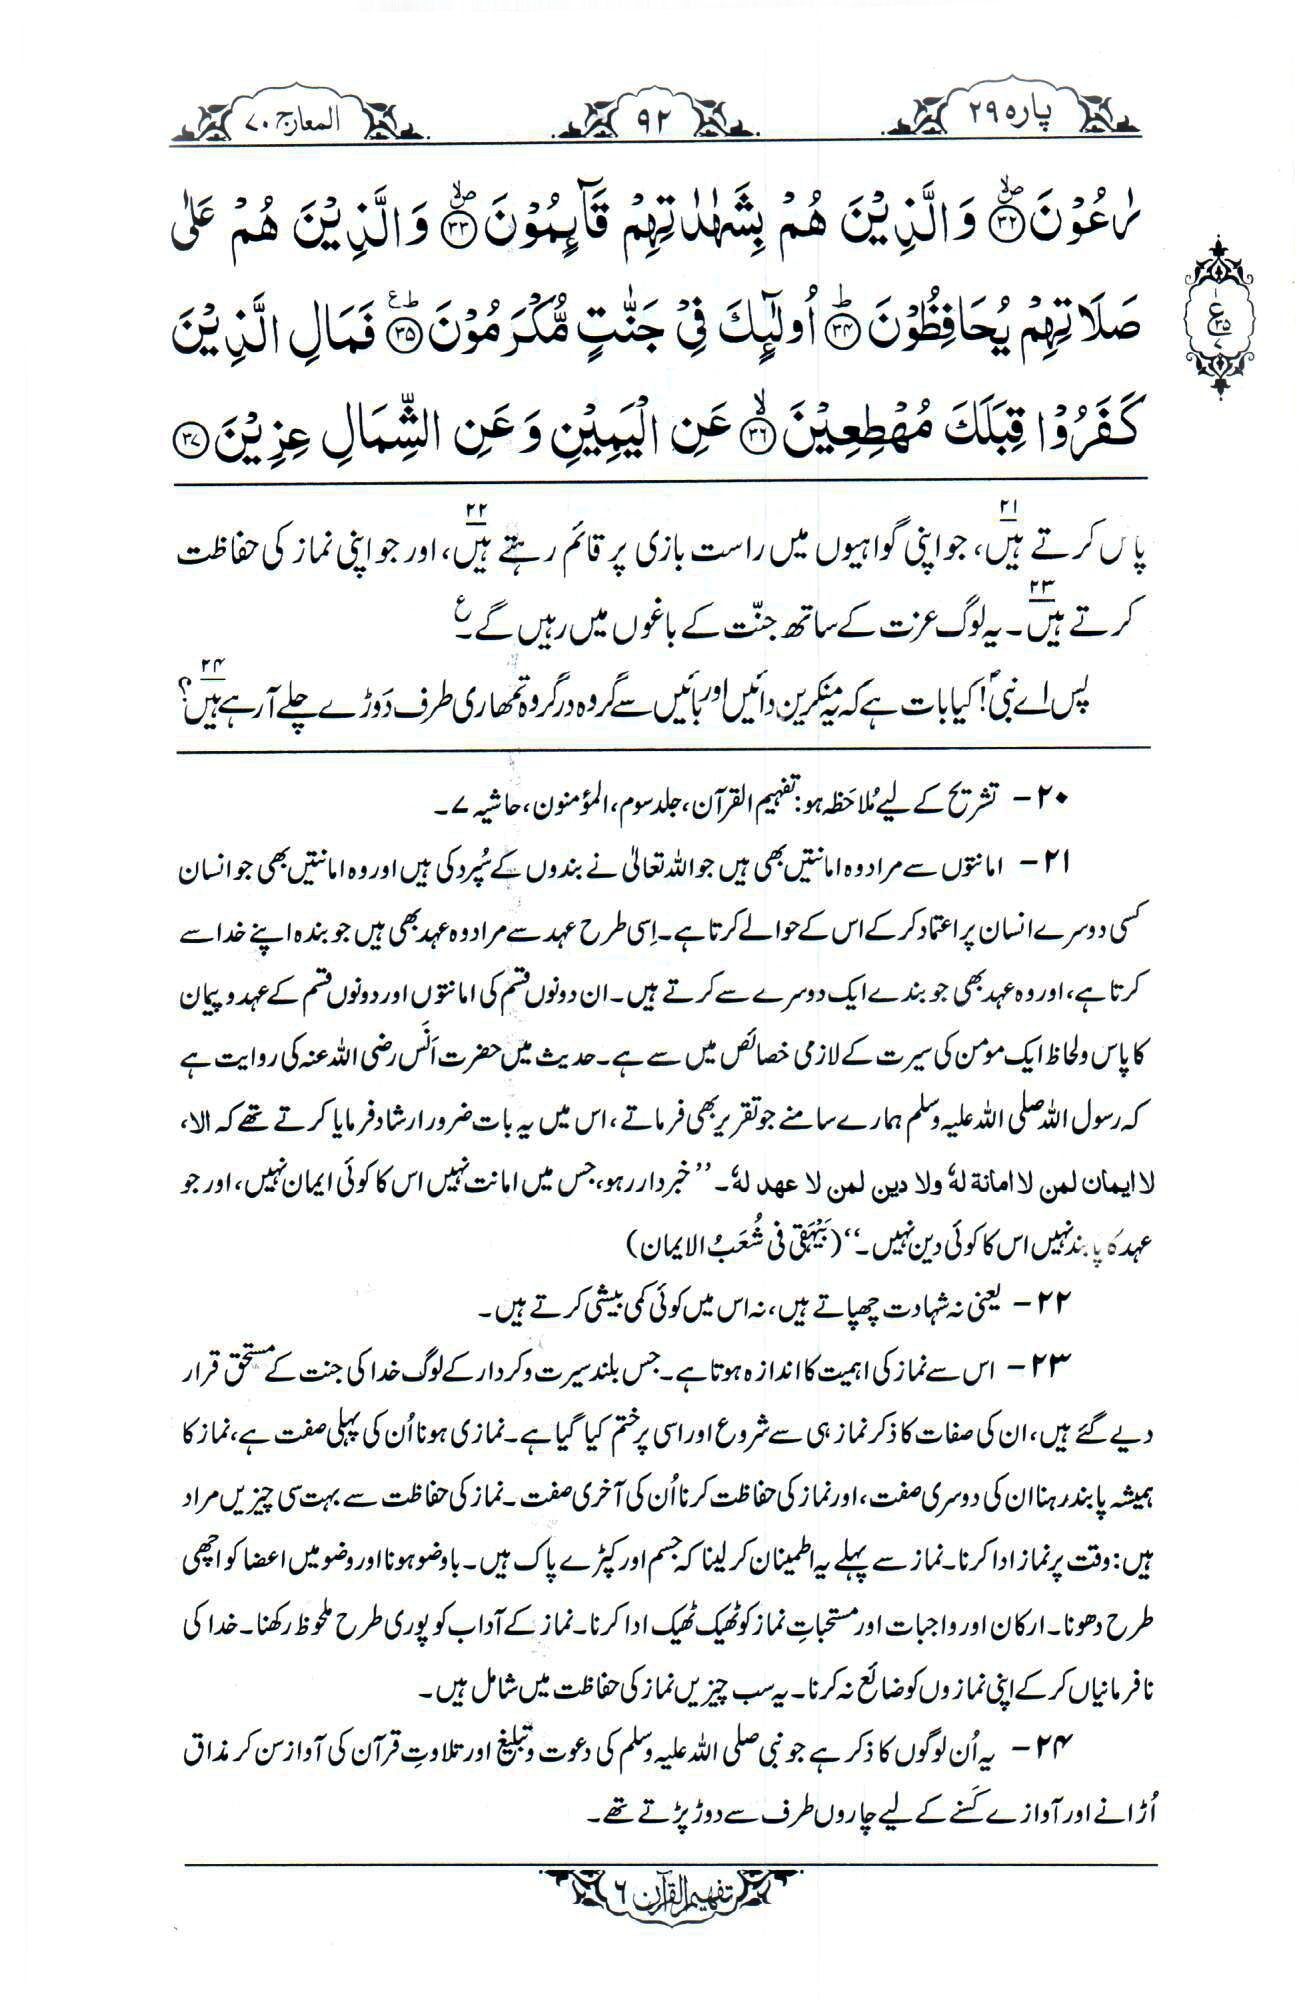 پارہ ۲۹
۹۲
المعارج ۷۰
رٰعُوْنَ ۝۳۲ۙ وَالَّذِیْنَ هُمْ بِشَهٰدٰتِهِمْ قَآىِٕمُوْنَ ۝۳۳ۙ وَالَّذِیْنَ هُمْ عَلٰی
صَلَاتِهِمْ یُحَافِظُوْنَ ۝۳۴ؕ اُولٰٓىِٕكَ فِیْ جَنّٰتٍ مُّكْرَمُوْنَ ۝۳۵ؕ فَمَالِ الَّذِیْنَ
كَفَرُوْا قِبَلَكَ مُهْطِعِیْنَ ۝۳۶ۙ عَنِ الْیَمِیْنِ وَعَنِ الشِّمَالِ عِزِیْنَ ۝۳۷
ع
۳۵
۷
پاس کرتے ہیں،۲۱ جو اپنی گواہیوں میں راست بازی پر قائم رہتے ہیں،۲۲ اور جو اپنی نماز کی حفاظت
کرتے ہیں۔۲۳ یہ لوگ عزت کے ساتھ جنّت کے باغوں میں رہیں گے۔ع
پس اے نبیؐ! کیا بات ہے کہ یہ منکرین دائیں اور بائیں سے گروہ در گروہ تمھاری طرف دَوڑے چلے آ رہے ہیں؟۲۴
۲۰– تشریح کے لیے مُلاحَظہ ہو: تفہیم القرآن، جلد سوم، المؤمنون، حاشیہ ۷۔
۲۱– امانتوں سے مراد وہ امانتیں بھی ہیں جو اللہ تعالیٰ نے بندوں کے سُپرد کی ہیں اور وہ امانتیں بھی جو انسان
کسی دوسرے انسان پر اعتماد کر کے اس کے حوالے کرتا ہے۔ اِسی طرح عہد سے مراد وہ عہد بھی ہیں جو بندہ اپنے خدا سے
کرتا ہے، اور وہ عہد بھی جو بندے ایک دوسرے سے کرتے ہیں۔ ان دونوں قسم کی امانتوں اور دونوں قسم کے عہد و پیمان
کا پاس و لحاظ ایک مومن کی سیرت کے لازمی خصائص میں سے ہے۔ حدیث میں حضرت اَنَس رضی اللہ عنہ کی روایت ہے
کہ رسول اللہ صلی اللہ علیہ وسلم ہمارے سامنے جو تقریر بھی فرماتے، اس میں یہ بات ضرور ارشاد فرمایا کرتے تھے کہ الا،
لا ایمان لمن لا امانة لهٗ ولا دین لمن لا عهد لهٗ۔ ’’خبردار رہو، جس میں امانت نہیں اس کا کوئی ایمان نہیں، اور جو
عہد کا پابند نہیں اس کا کوئی دین نہیں۔‘‘ (بَیْہَقِی فی شُعَبُ الایمان)
۲۲– یعنی نہ شہادت چھپاتے ہیں، نہ اس میں کوئی کمی بیشی کرتے ہیں۔
۲۳– اس سے نماز کی اہمیت کا اندازہ ہوتا ہے۔ جس بلند سیرت و کردار کے لوگ خدا کی جنت کے مستحق قرار
دیے گئے ہیں، ان کی صفات کا ذکر نماز ہی سے شروع اور اسی پر ختم کیا گیا ہے۔ نمازی ہونا اُن کی پہلی صفت ہے، نماز کا
ہمیشہ پابند رہنا ان کی دوسری صفت، اور نماز کی حفاظت کرنا اُن کی آخری صفت۔ نماز کی حفاظت سے بہت سی چیزیں مراد
ہیں: وقت پر نماز ادا کرنا۔ نماز سے پہلے یہ اطمینان کر لینا کہ جسم اور کپڑے پاک ہیں۔ با وضو ہونا اور وضو میں اعضا کو اچھی
طرح دھونا۔ ارکان اور واجبات اور مستحباتِ نماز کو ٹھیک ٹھیک ادا کرنا۔ نماز کے آداب کو پوری طرح ملحوظ رکھنا۔ خدا کی
نافرمانیاں کر کے اپنی نمازوں کو ضائع نہ کرنا۔ یہ سب چیزیں نماز کی حفاظت میں شامل ہیں۔
۲۴– یہ اُن لوگوں کا ذکر ہے جو نبی صلی اللہ علیہ وسلم کی دعوت و تبلیغ اور تلاوتِ قرآن کی آواز سن کر مذاق
اُڑانے اور آوازے کَسنے کے لیے چاروں طرف سے دوڑ پڑتے تھے۔
تفہیم القرآن ۶